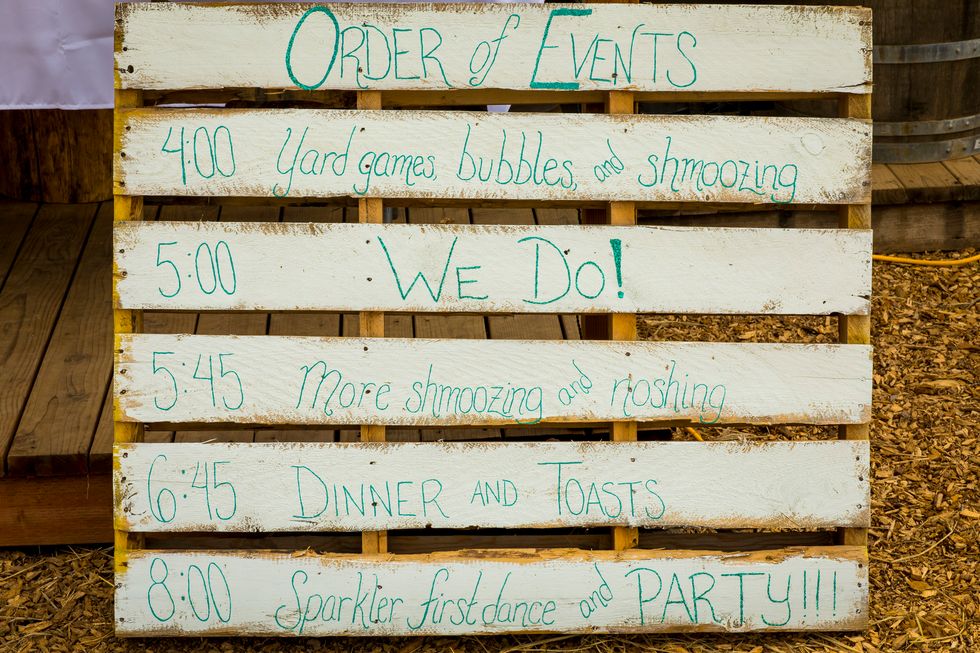 Order of Events
4:00 Yard games, bubbles, and shmoozing
5:00 We Do!
5:45 More shmoozing and noshing
6:45 Dinner and Toasts
8:00 Sparkler first dance and PARTY!!!